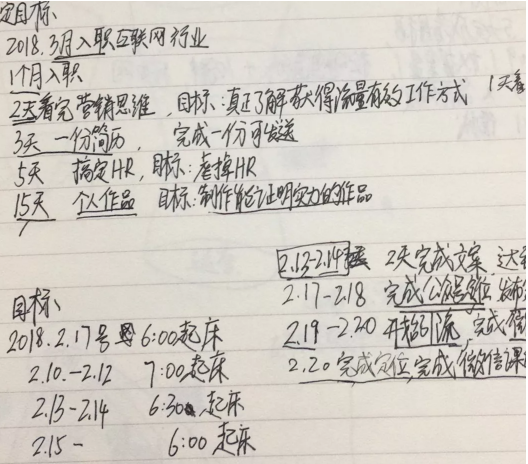 定目标
2018.3月入职互联网行业
1个月入职
2天看完营销思维，目标：真正了解获得流量有效工作方式 1天看
3天 一份简历， 完成一份可发送
5天 搞定HR，目标：虐掉HR
15天 个人作品 目标：制作能证明实力的作品
2.13-2.14 2天完成文案
2.17-2.18 完成公众号
2.19-2.20 开始引流，完成
2.20完成定位，完成微信课
目标
2018.2.17号 6:00起床
2.10.-2.12 7:00起床
2.13-2.14 6:30 起床
2.15- 6:00 起床